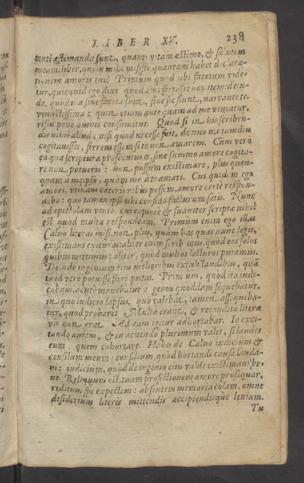 LIBER XV. 238
tanti æstimanda sunt, quanti vitam æstimo, & salutem
meam. liber, quem mihi misisti, quantam habet declara-
tionem amoris tui? Primum quod tibi facetum vide-
tur, quicquid ego dixi quod alii fortasse non item: dein-
de, quod illa sive faceta sunt, sive sic fiunt, narrante te
venustissima: quin etiam antequam ad me veniatur,
risus pene omnis consumitur. Quod si in his scriben-
dis nihil aliud, nisi quod necesse fuit, de uno me tamdiu
cogitavisses, ferreus essem si te non amarem. Cum vero
ea quæ scriptura prosecutus es, sine summo amore cogita-
re non potueris: non possum existimare, plus quen-
quam a se ipso, quam me a te amari. Cui quidem ego
amori, utinam cæteris rebus possem, amore certe respon-
debo: quo tamen ipso tibi confido futurum satis. Nunc
ad epistolam venio. cui copiose & suaviter scriptæ nihil
est quod multa respondeam. Primum enim ego illas
Calvo literas misi, non plus, quam has quas nunc legis,
existimans exituras: aliter enim scribimus, quod eos solos
quibus mittimus: aliter, quod multos lecturos putamus.
Deinde ingenium ejus melioribus extuli laudibus, quàm
tu id vere potuisse fieri putas. Primum, quod ita judi-
cabam, acute movebatur: genus quoddam sequebatur,
in quo judicio lapsus, quo valebat, tamen assequeba-
tur, quod probaret. Multæ erant, & reconditæ literæ
vis non erat. Ad eam igitur adhortabar. In exci-
tando autem, & in acuendo plurimum valet, si laudes
eum quem cohortere. Habes de Calvo judicium &
consilium meum: consilium, quod hortandi causa lauda-
vi: judicium, quod de ingenio ejus valde existimavi be-
ne. Reliquum est, tuam profectionem amore prosequar,
reditum spe expectem: absentem memoria colam, omne
desiderium literis mittendis accipiendisque leniam.
Tu